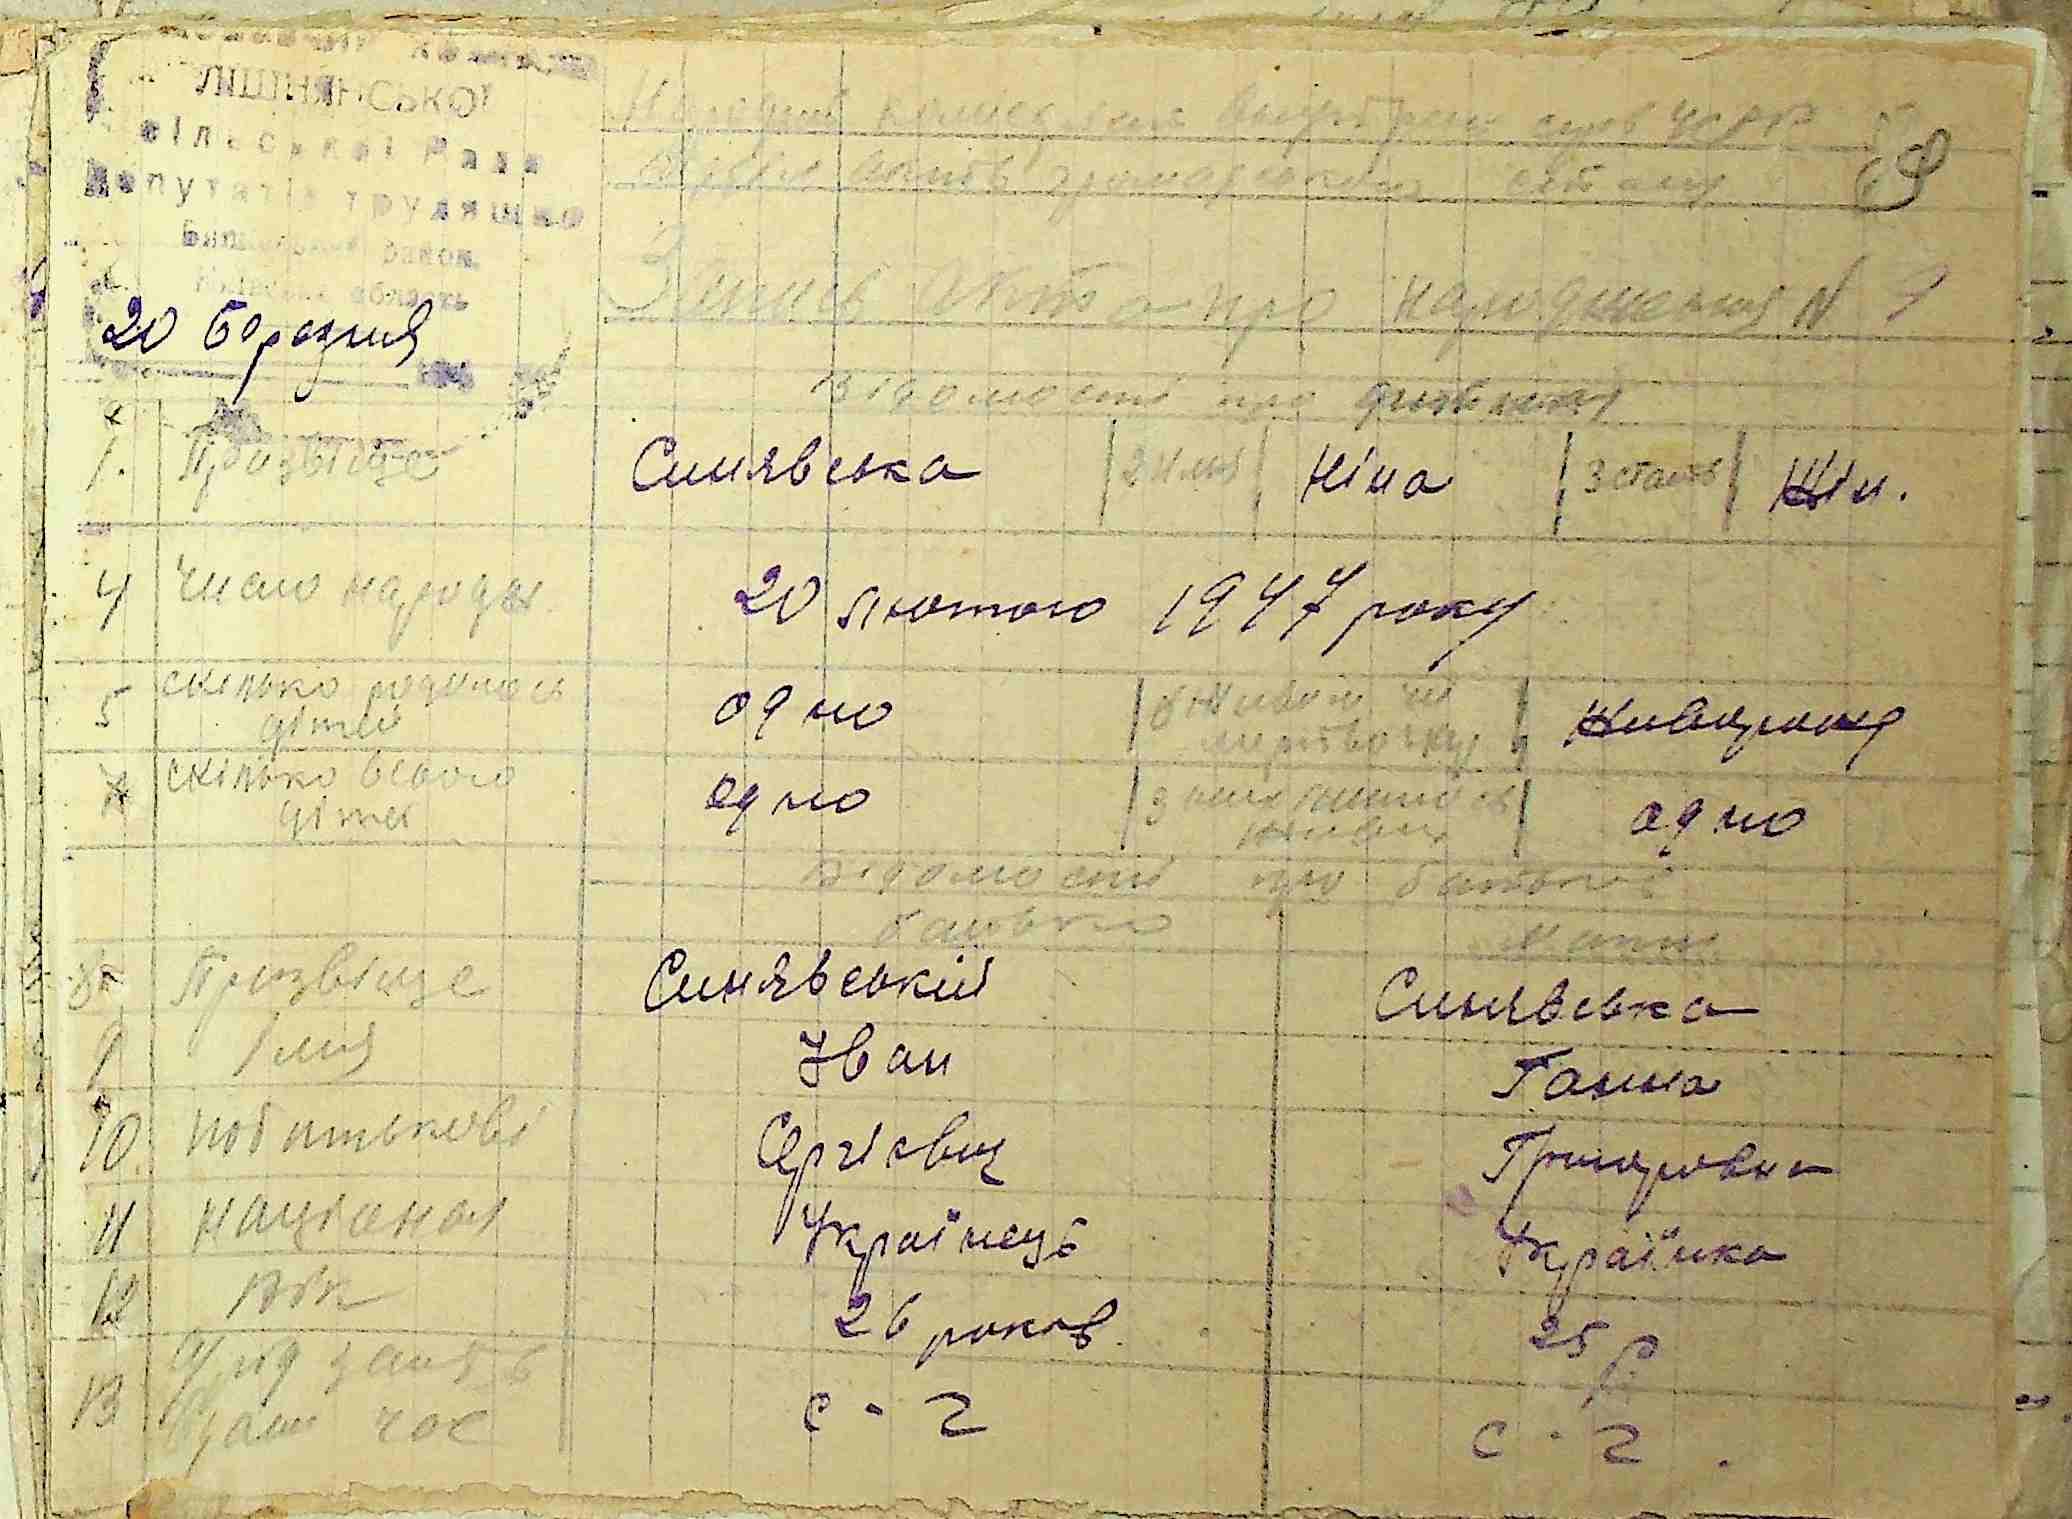 ЛІШНЯНСЬКОЇ
сільської Ради
Депутатів трудящих
район
область
20 березня
Народний внутрішн справ УСРР
Відділ актів громадського стану
69
Запис акта про народження N 9
Відомості про дитину
1. Прізвіще Синявська 2 Имя Ніна 3 стать Жін.
4 Число народж. 20 лютого 1947 року
5 скілько родилось дітей одно 6 Живою чи мертвою Живароже
7 скілько всього дітей одно з них лишилось живих одно
Відомості про батьків
батько Мати
8 Призвіще Синявський Синявська
9 Імя Іван Ганна
10 побатькові Сергієвич Григоровна
11 націонал Українець Українка
12 Вік 26 років 25 р.
13 час с-г с-г.